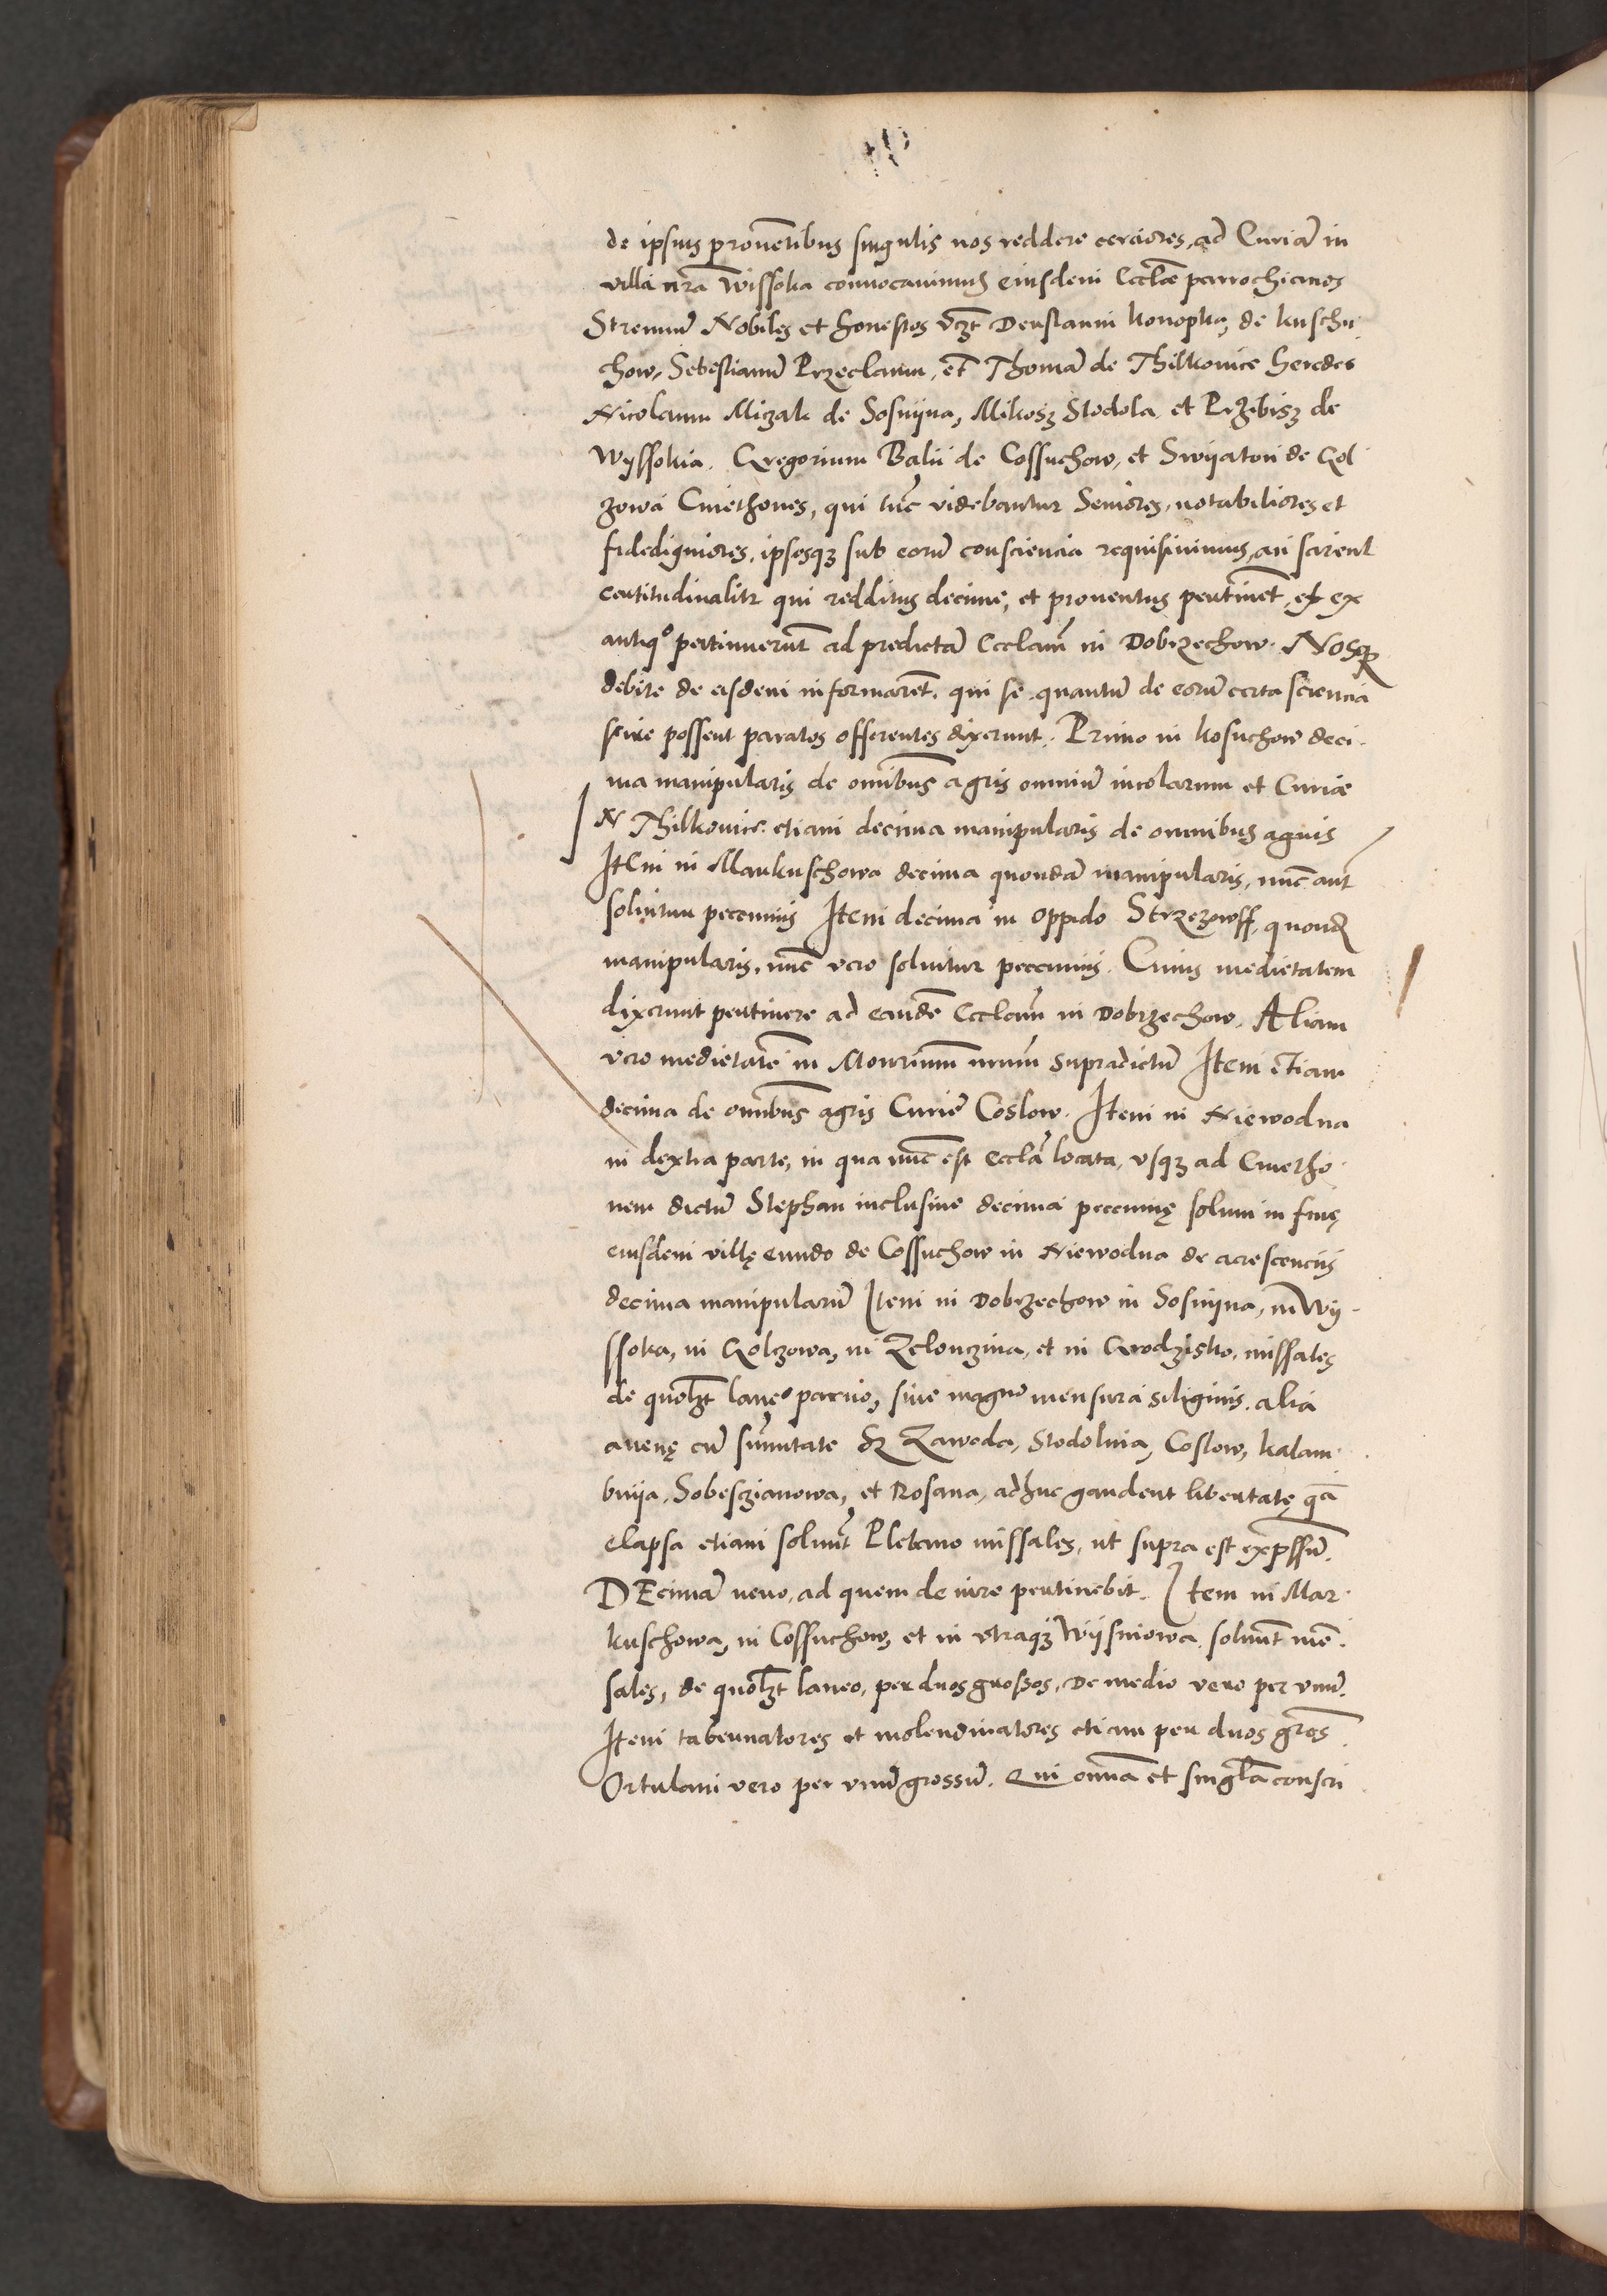 de ipsius prouētibus singulis nos reddere cerciores, ad Curiā in
villa nr̄a Wissoka conuocauimus eiusdem Eccl̄ae parrochianos
Strenuū Nobiles et honestos vz̄t Derslaum konopka, de kuschu
chow, Sebestianū Przeclaum, et Thomā de Thilkouice heredes
Nicolaum Miczak de Sosnijna, Mikosz Stodola, et Przibisz de
Wyssokia. Gregorium Balii de Cossuchow, et Swijaton de Gol
zowa Cmethones, qui tūc videbantur Seniores, notabiliores et
fidedigniores, ipsosqz sub eorū consciencia requisiuimus, an scirent
certitudinalitr qui redditus decime, et prouentus pertinēt, et ex
antiqo pertinuerūt ad predictā Eccl̄am in Dobrzechow. Nosqz
debite de eisdem informarēt. qui se quantū de eorū certa sciencia
scire possent paratos offerentes dixerunt. Primo in kosuchow deci
ma manipularis de omībus agris omniū incolarum et Curiae
N Thilkouice etiam decima manipularis de omnibus agris
Item in Markuschowa decima quondā manipularis, nūc aūt
soluitur pecuniis Item decima in oppido Strzezowff, quond
manipularis, nūc vero soluitur pecuniis. Cuius medietatem
dixerunt pertinere ad eandē Eccl̄am in Dobrzechow. Aliam
vero medietatē in Monriū nrum supradictū Item etiam
decima de omībus agris Curiē Coslow. Item in Niewodna
in dextra parte, in qua nūc est Eccl̄a locata, vsqz ad Cmetho
nem dictū Stephan inclusiue decima pecunię solum in finę
eiusdem villę eundo de Cossuchow in Niewodna de acrescenciis
decima manipulariū Item in Dobrzechow in Sosnijna, in Wij
ssoka, in Golczowa, in Zelonczina, et in Grodzisko, missales
de quolz̄t laneo paruo, siue magno mensura siliginis. alia
auenę cū sumitate Sz Zawoda, Stodolnia, Coslow, kalam
bnija, Sobesczianowa, et Rosana, adhuc gaudent libertatę qā
elapsa etiam soluūt Plebano missales, ut supra est exp̄ssū.
DEcimā uero, ad quem de iure pertinebit. Item in Mar
kuschowa, in Cossuchow, et in vtraqz Wijsniowa. soluūt mē
sales, de quolz̄t laneo, per duos grossos, De medio vero per vnū.
Item tabernatores et molendinatores etiam per duos gr̄os
Ortulani vero per vnū grossū. Qui om̄ia et singl̄a conscri